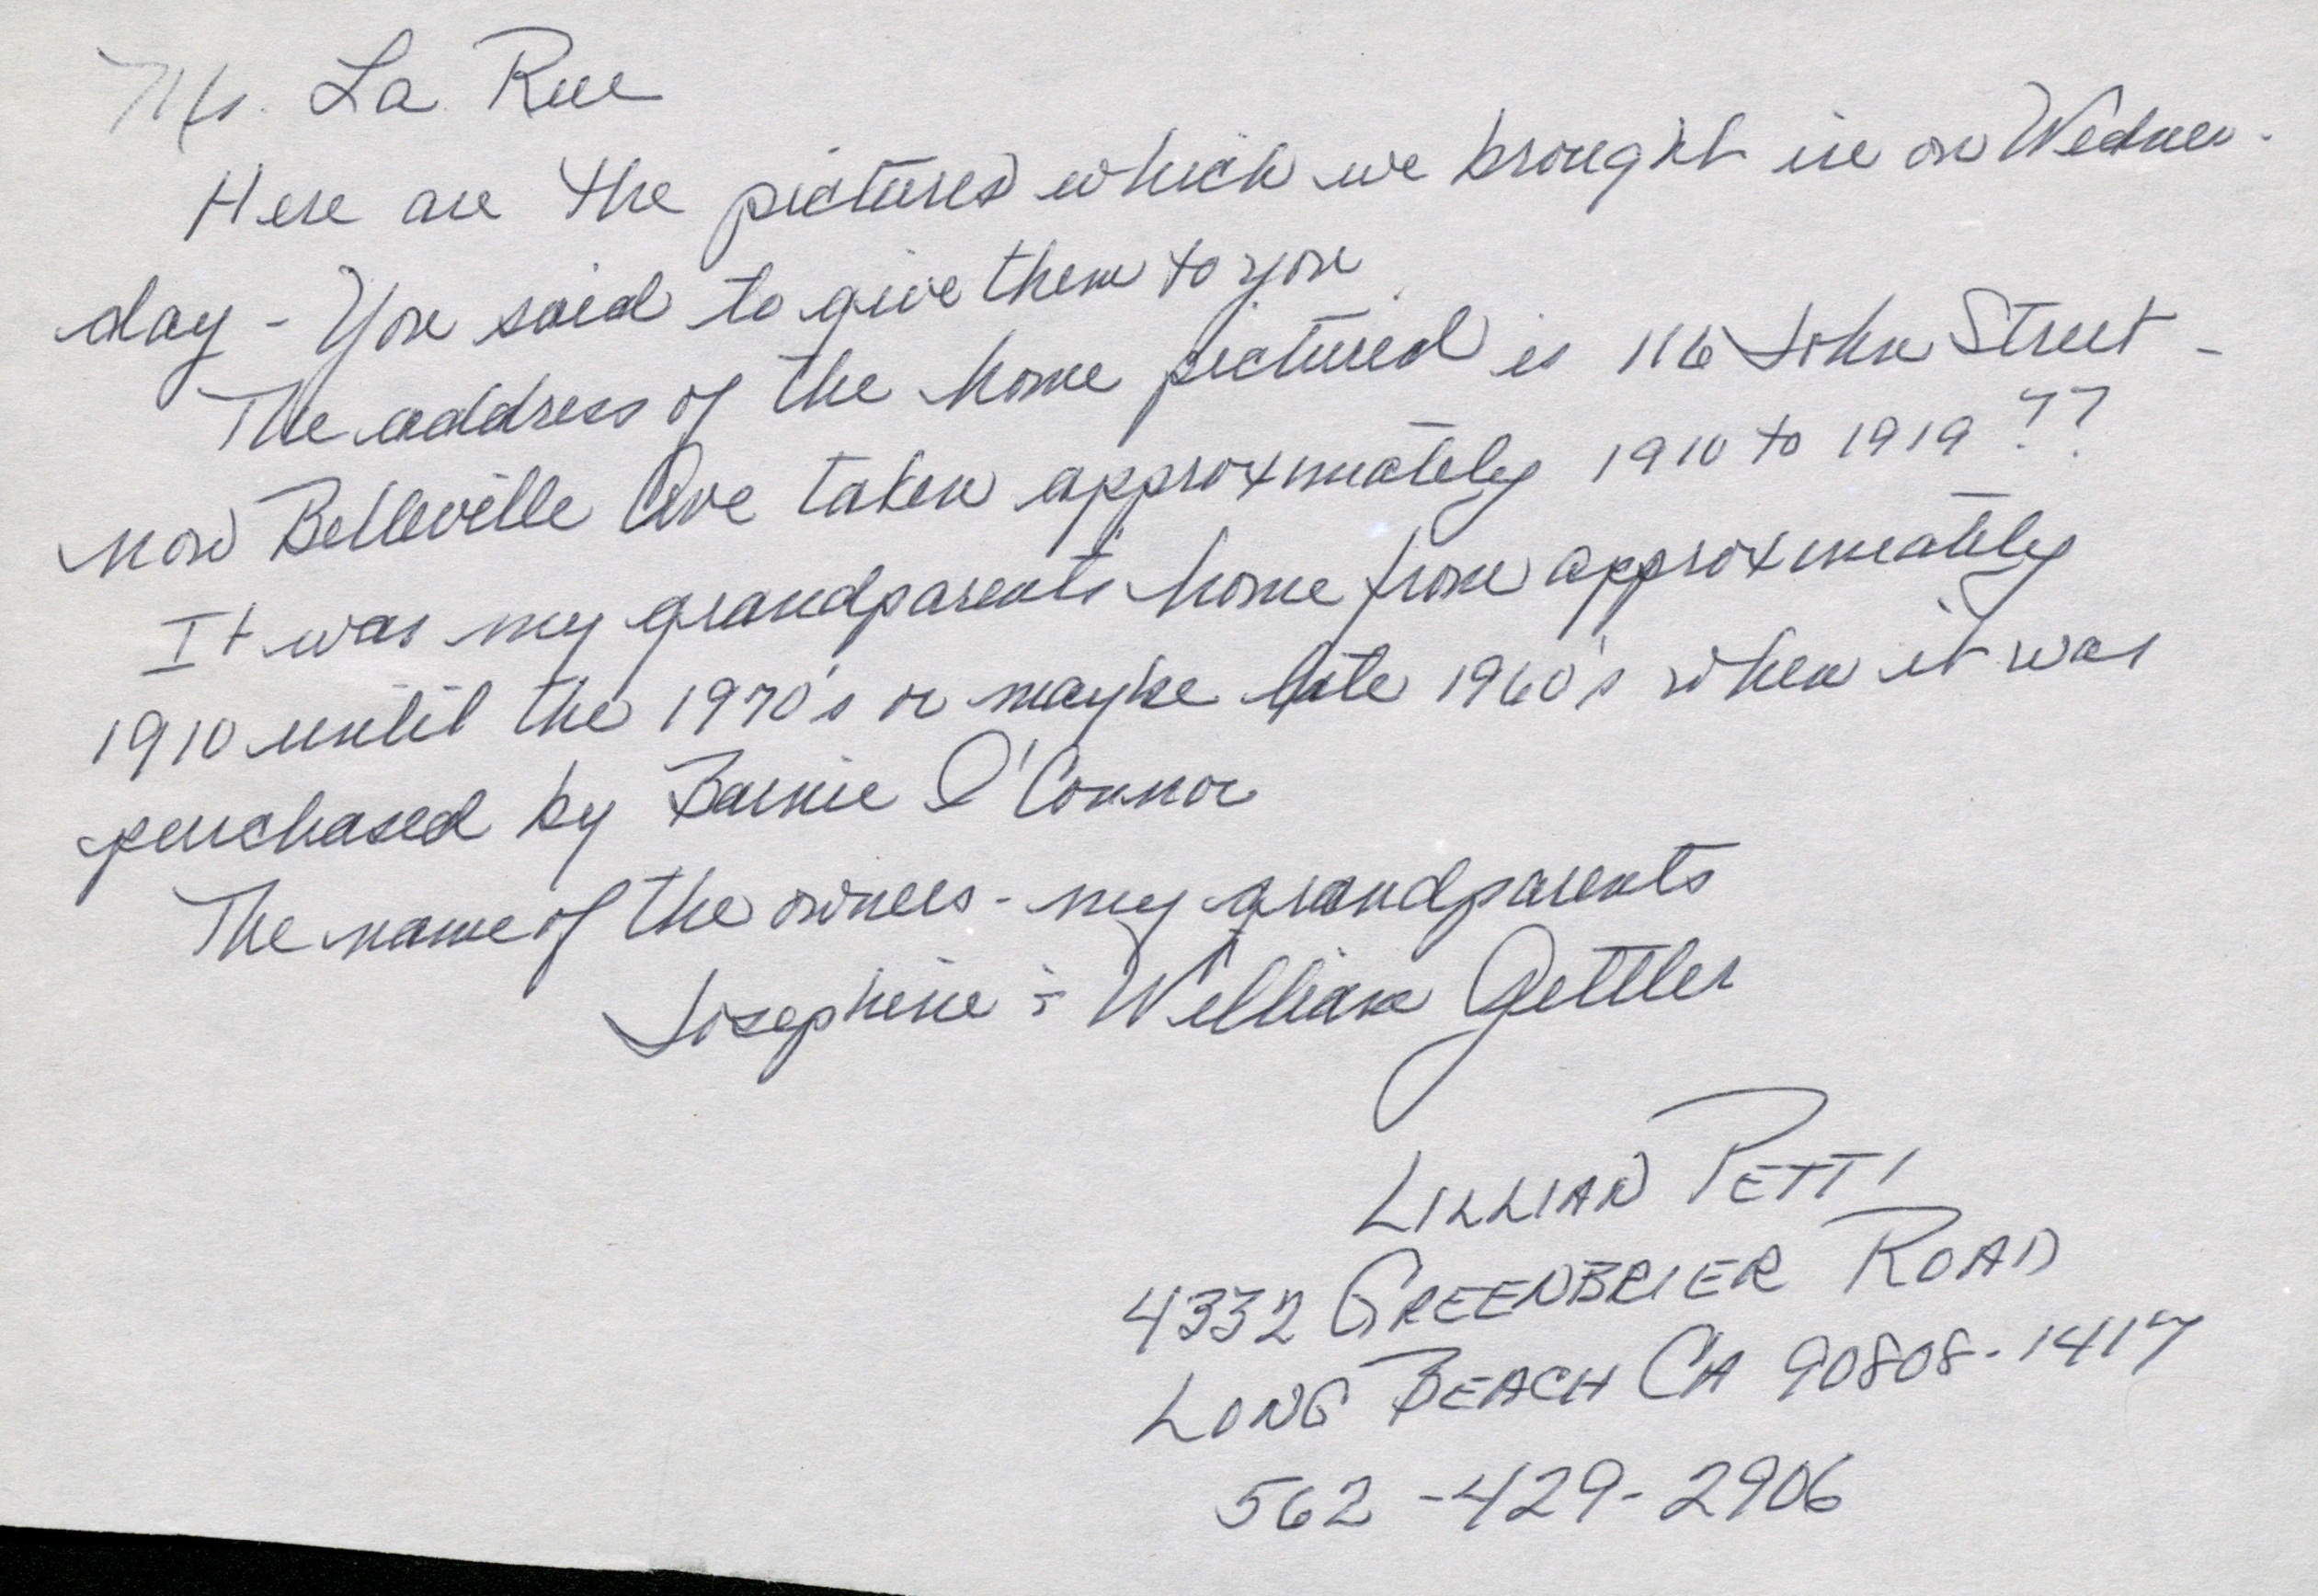 Mr. La Rue
Here are the pictures which we brought in on Wednes-
day - You said to give them to you.
The address of the home pictured is 116 John Street -
now Belleville Ave taken approximately 1910 to 1919 ??
It was my grandparents' home from approximately
1910 until the 1970's or maybe late 1960's when it was
purchased by Barnie O'Connor
The name of the owners - my grandparents
Josephine & William Gettler
LILLIAN PETTI
4332 GREENBRIER ROAD
LONG BEACH CA 90808-1417
562-429-2906